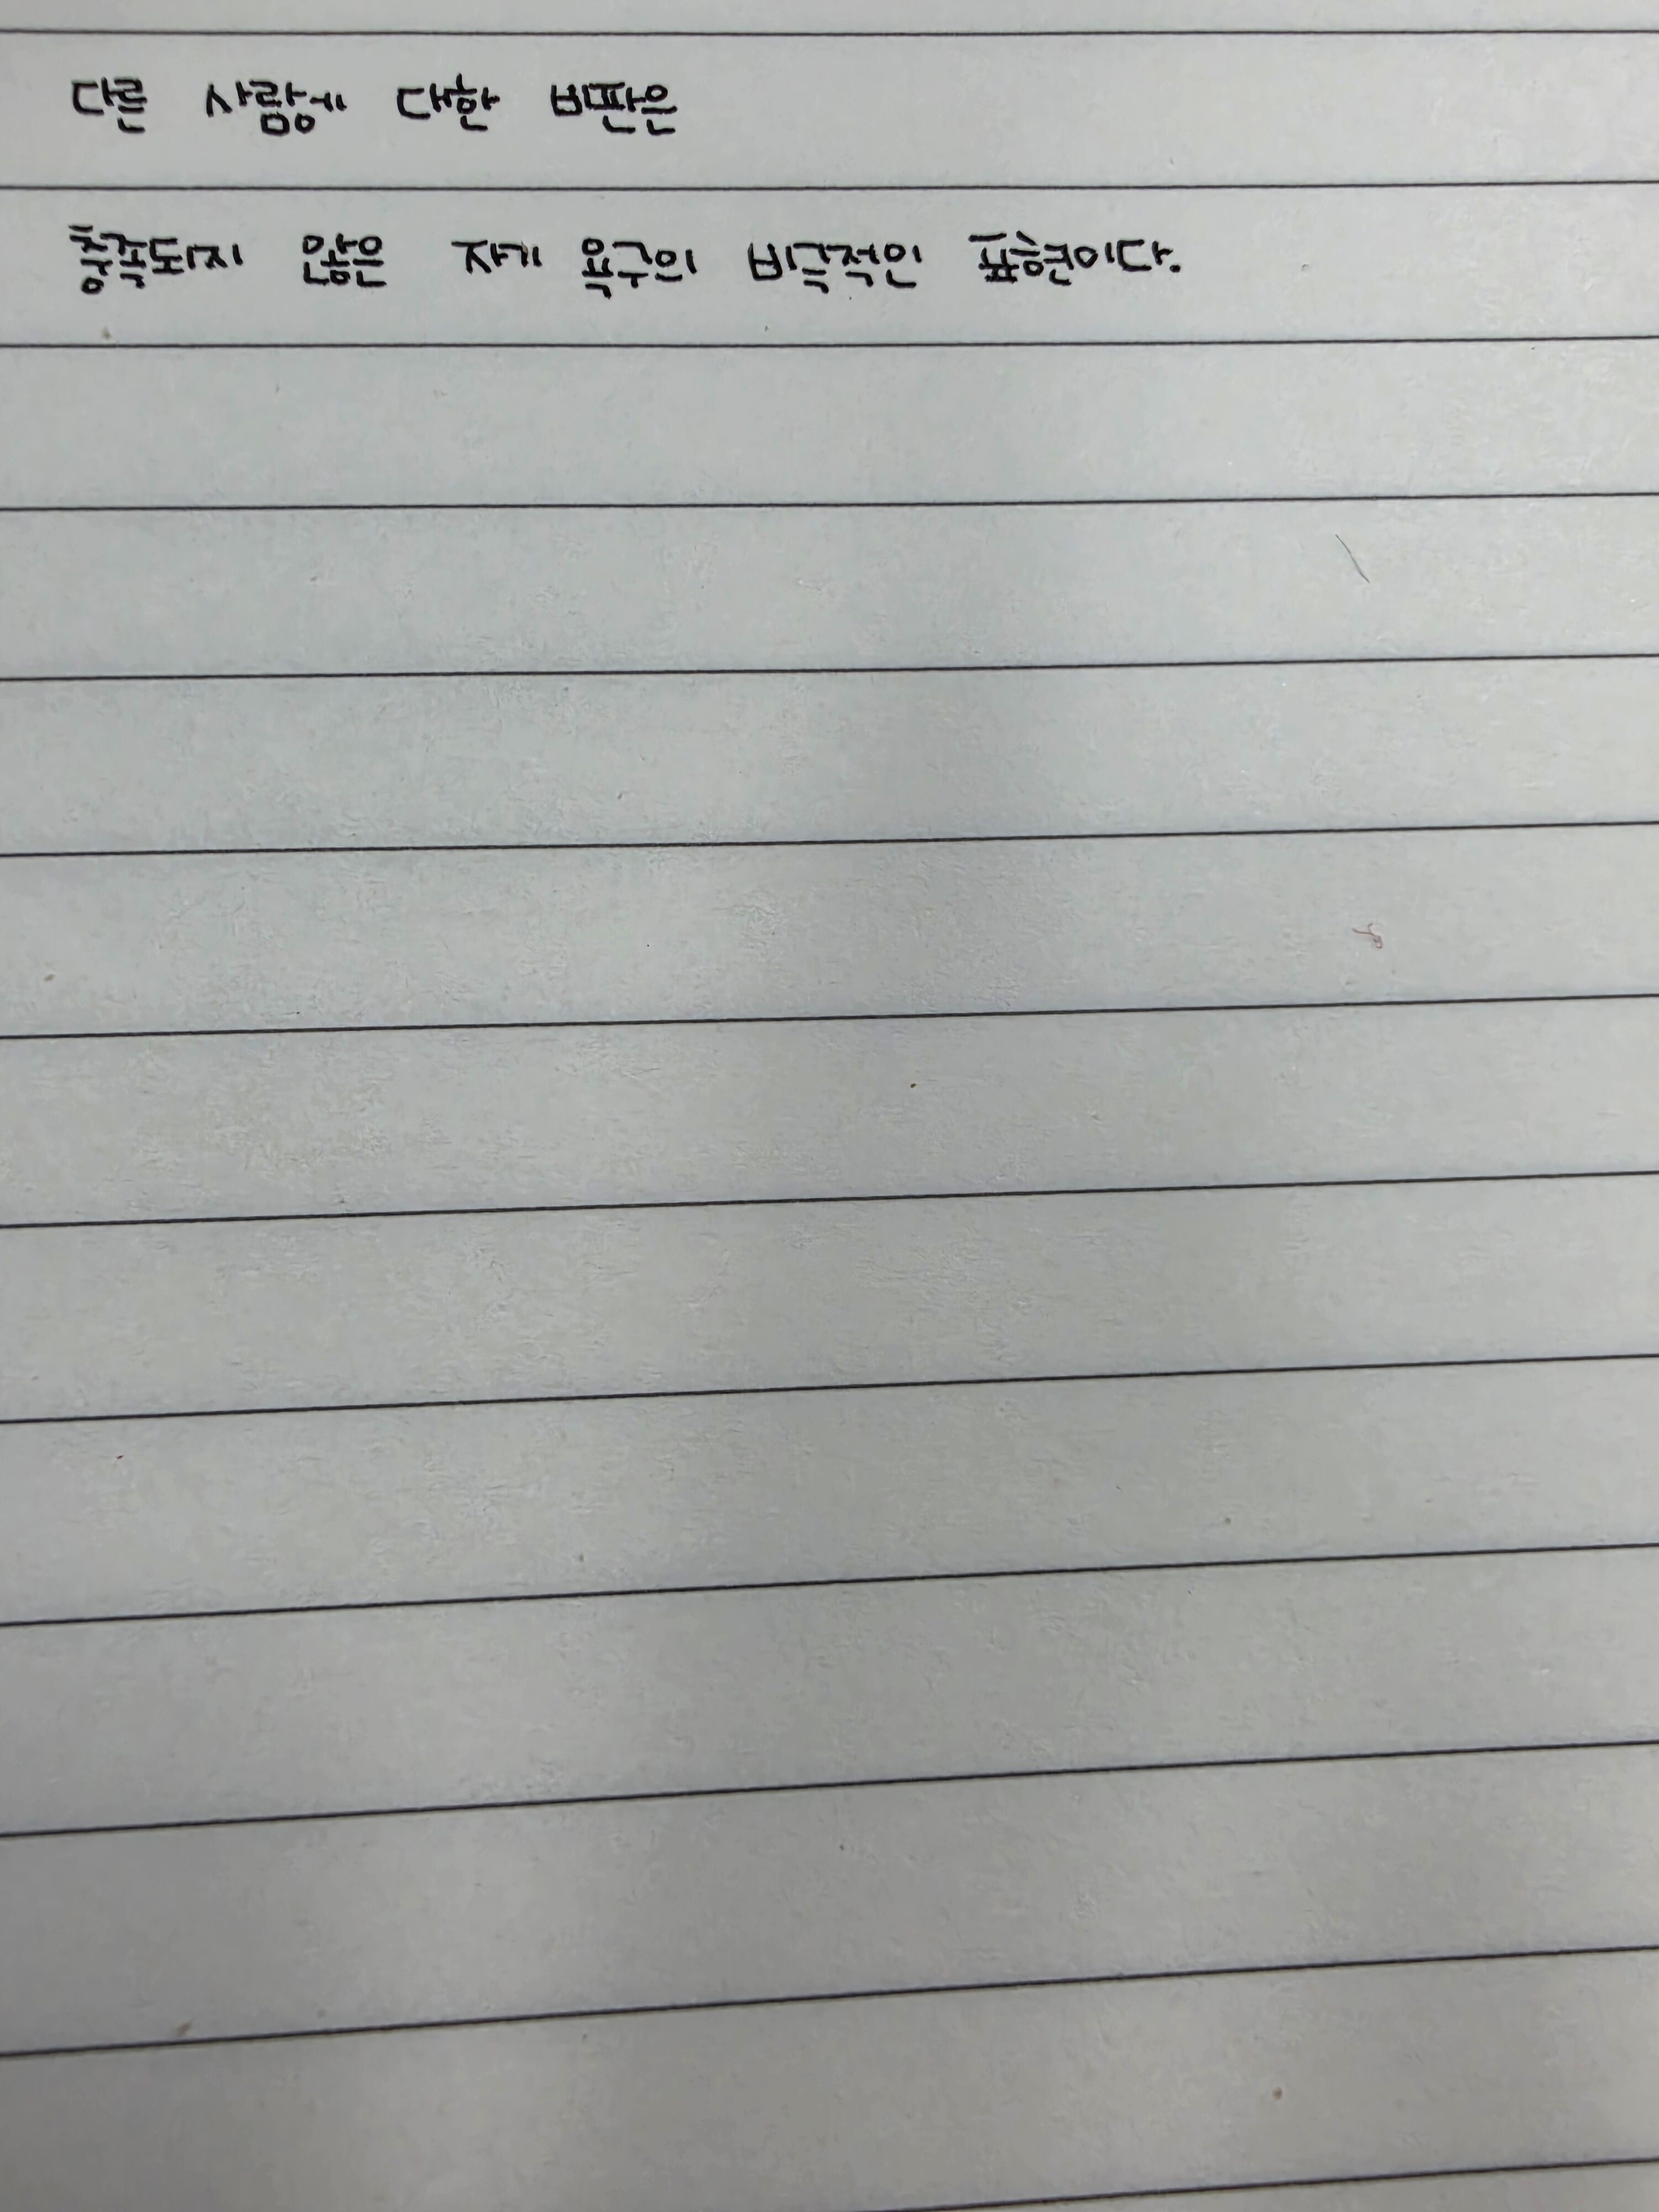 다른 사람에 대한 비판은
충족되지 않은 자기 욕구의 비극적인 표현이다.